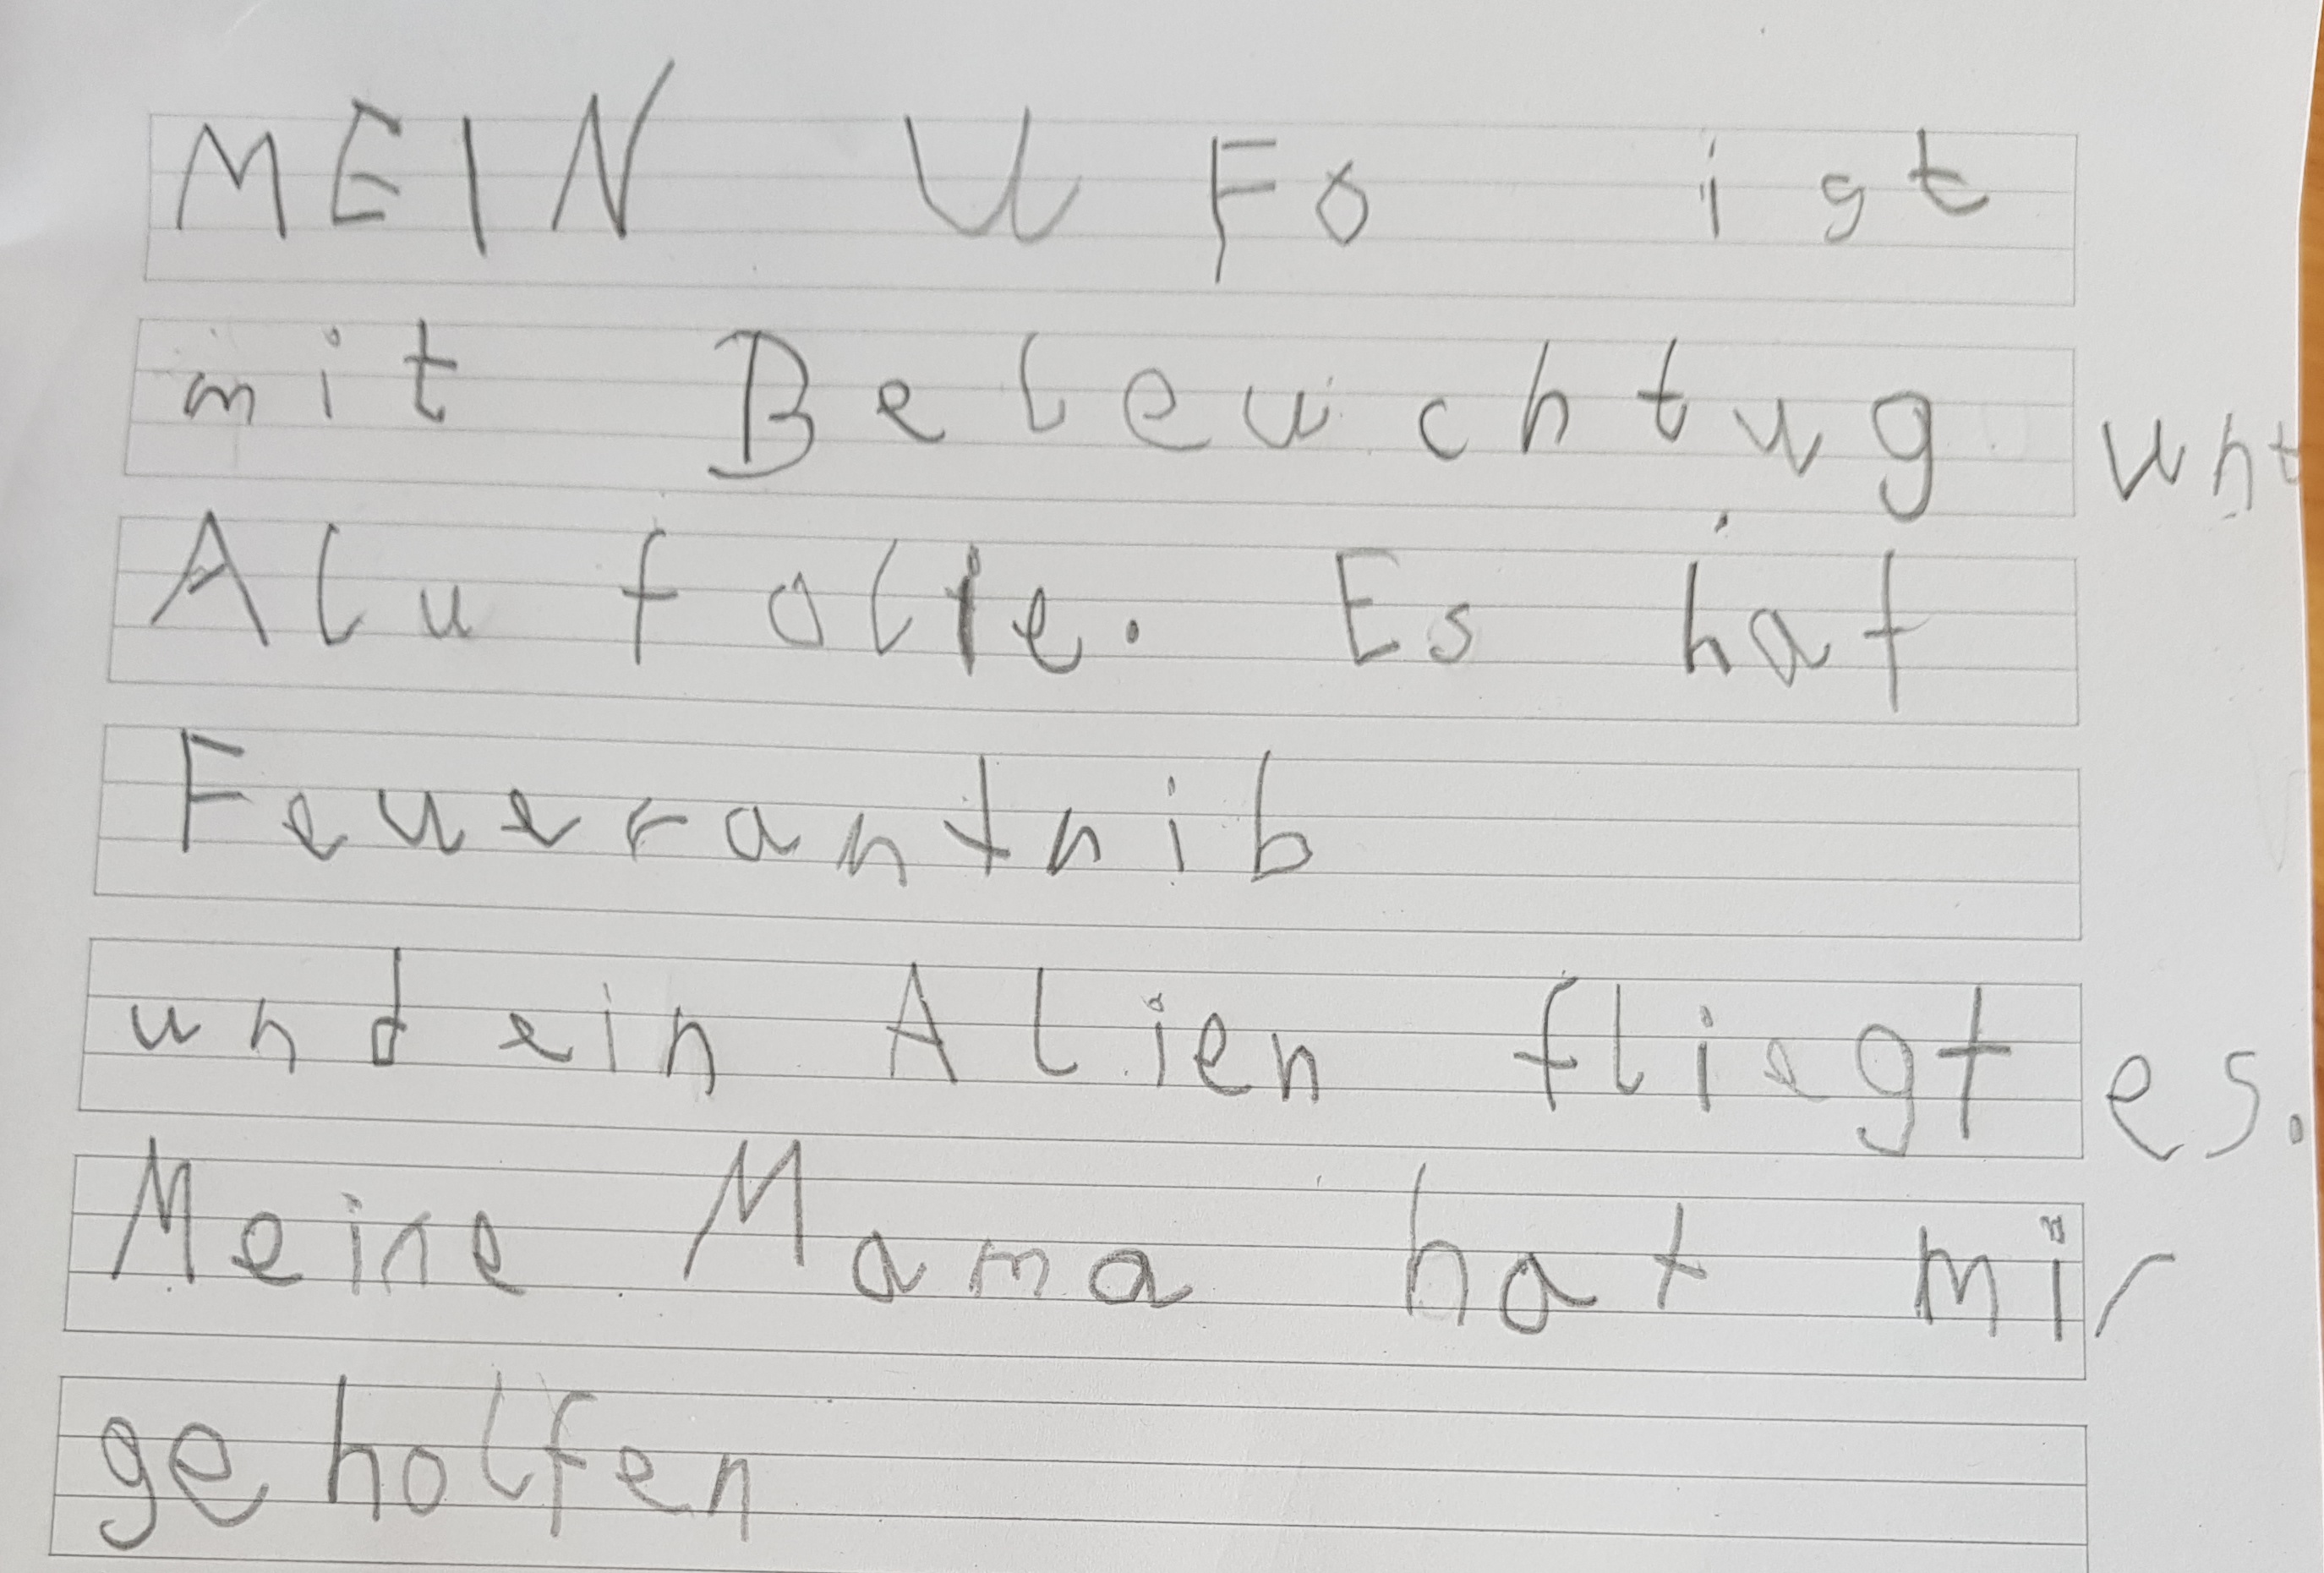 MEIN UFO ist
mit Beleuchtug unt
Alufolie. Es hat
Feuerantnib
und ein Alien fliegt es.
Meine Mama hat mir
geholfen